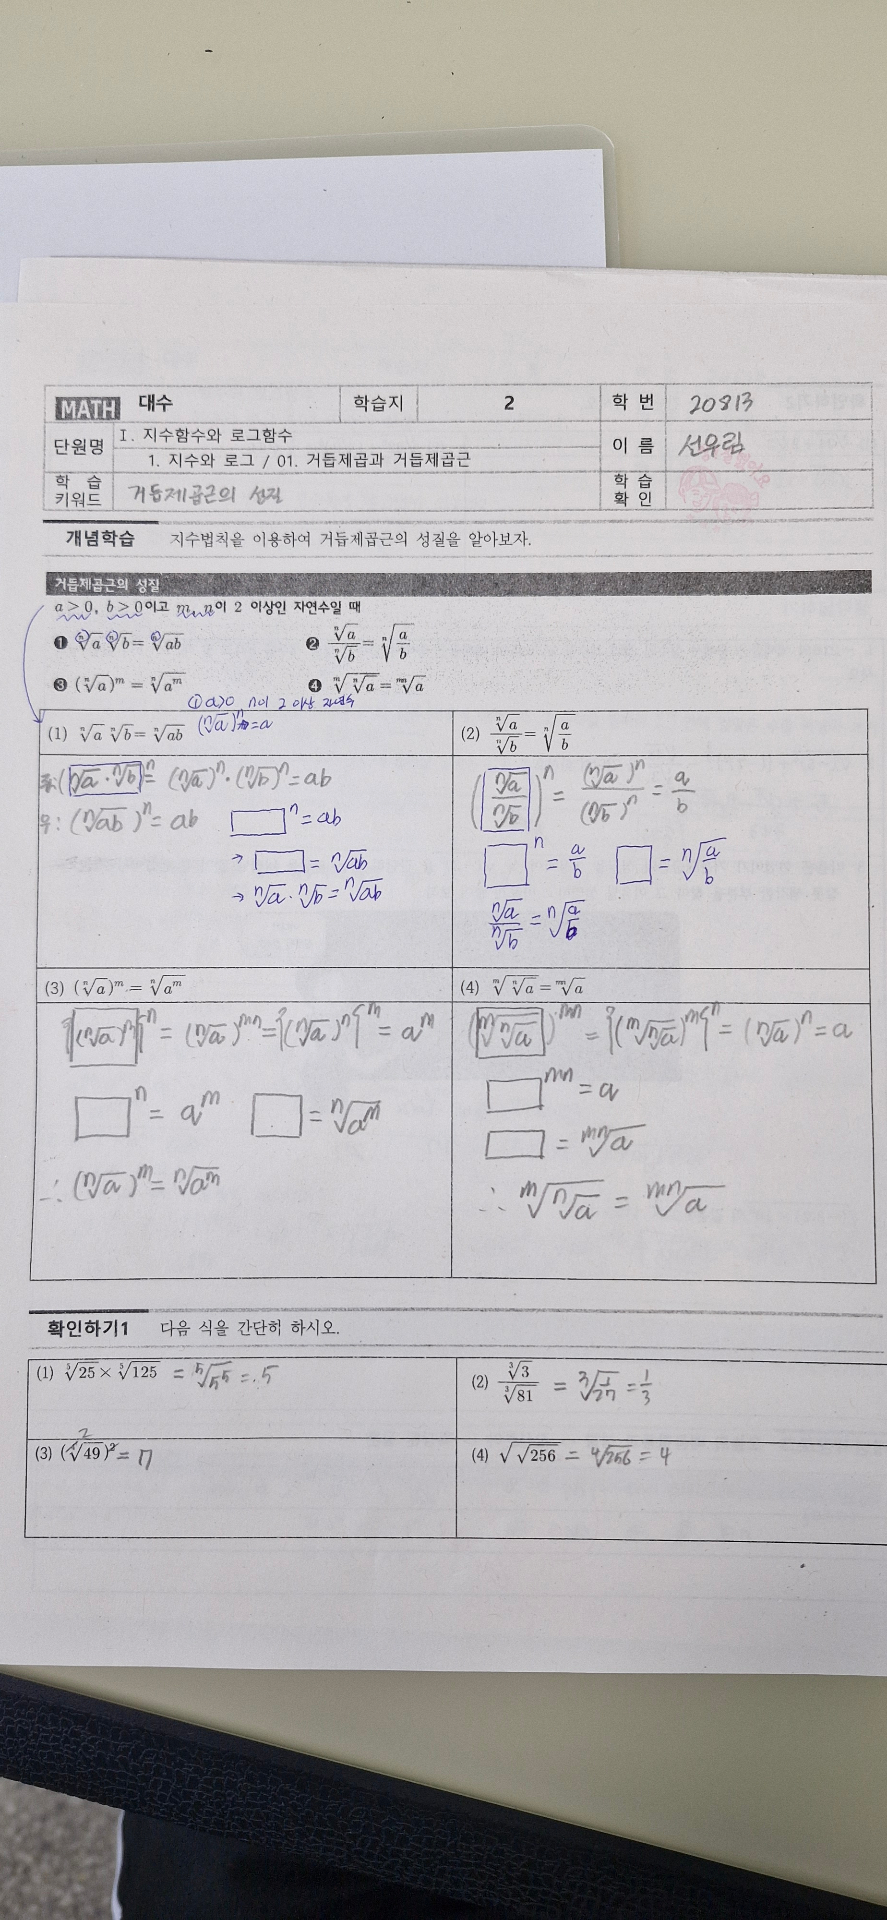 MATH 대수 학습지 2 학 번 20813
단원명 Ⅰ. 지수함수와 로그함수 이 름 선우림
1. 지수와 로그 / 01. 거듭제곱과 거듭제곱근
학 습 키워드 거듭제곱근의 성질 학 습 확 인
개념학습 지수법칙을 이용하여 거듭제곱근의 성질을 알아보자.
거듭제곱근의 성질
a>0, b>0이고 m, n이 2 이상인 자연수일 때
❶ ⁿ√a ⁿ√b = ⁿ√ab ❷ ⁿ√a / ⁿ√b = ⁿ√(a/b)
❸ (ⁿ√a)ᵐ = ⁿ√aᵐ ❹ ᵐ√ⁿ√a = ᵐⁿ√a
① a>0 n이 2 이상 자연수
(1) ⁿ√a ⁿ√b = ⁿ√ab (ⁿ√a)ⁿ = a
(2) ⁿ√a / ⁿ√b = ⁿ√(a/b)
(ⁿ√a · ⁿ√b)ⁿ = (ⁿ√a)ⁿ · (ⁿ√b)ⁿ = ab
우: (ⁿ√ab)ⁿ = ab □ⁿ = ab
→ □ = ⁿ√ab
→ ⁿ√a · ⁿ√b = ⁿ√ab
(ⁿ√a / ⁿ√b)ⁿ = (ⁿ√a)ⁿ / (ⁿ√b)ⁿ = a/b
□ⁿ = a/b □ = ⁿ√(a/b)
ⁿ√a / ⁿ√b = ⁿ√(a/b)
(3) (ⁿ√a)ᵐ = ⁿ√aᵐ
(4) ᵐ√ⁿ√a = ᵐⁿ√a
{(ⁿ√a)ᵐ}ⁿ = (ⁿ√a)ᵐⁿ = {(ⁿ√a)ⁿ}ᵐ = aᵐ
□ⁿ = aᵐ □ = ⁿ√aᵐ
∴ (ⁿ√a)ᵐ = ⁿ√aᵐ
(ᵐ√ⁿ√a)ᵐⁿ = {(ᵐ√ⁿ√a)ᵐ}ⁿ = (ⁿ√a)ⁿ = a
□ᵐⁿ = a
□ = ᵐⁿ√a
∴ ᵐ√ⁿ√a = ᵐⁿ√a
확인하기1 다음 식을 간단히 하시오.
(1) ⁵√25 × ⁵√125 = ⁵√5⁵ = 5
(2) ³√3 / ³√81 = ³√(1/27) = 1/3
2
(3) (⁴√49)² = 7
(4) √√256 = ⁴√256 = 4